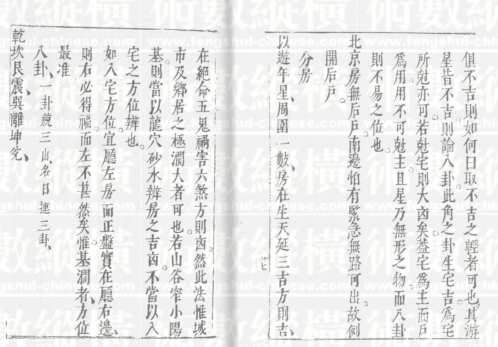 俱不吉則如何曰取不吉之輕者可也其游
星皆不吉則論八卦此角之卦生宅吉爲宅
所尅亦可若尅宅則大凶矣葢宅爲主而戸
爲用用不可尅主且星乃無形之物而八卦
則不易之位也
北京房無后戸南邊怕有緊急無路可出故側
開后戸
分房
以遊年星周圍一數房在生天延三吉方則吉
在絕命五鬼禍害六煞方則凶然此法惟城
市及鄉居之極濶大者可也若山谷窄小陽
基則當以龍穴砂水辨房之吉凶不當以入
宅之方位辨也
如入宅方位宜廳左房而正盤實在廳右邊
則右必得福而左不甚然矣惟基濶者方位
最准
八卦一卦統三山名曰連三卦
乾坎艮震巽離坤兌